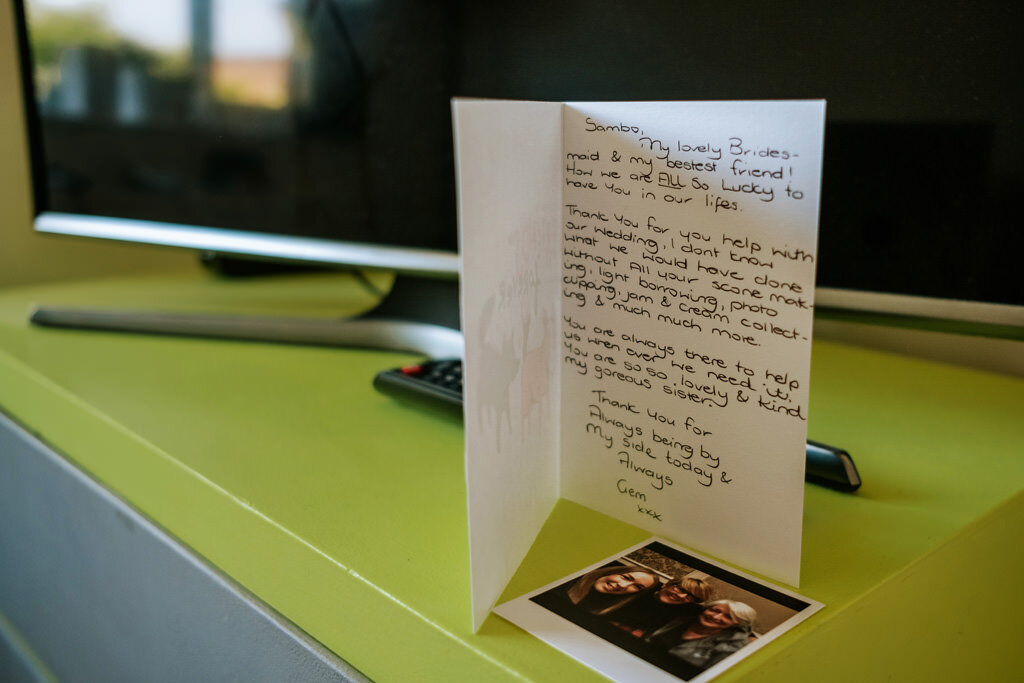 Sambo,
My lovely Brides-
maid & my bestest friend!
How we are ALL so Lucky to
have you in our lifes.
Thank you for you help with
our wedding, I dont know
what we would have done
without All your scone mak-
ing, light borrowing, photo
cupping, jam & cream collect-
ing & much much more.
You are always there to help
us when over we need it.
You are so so lovely & kind
my goreous sister.
Thank you for
Always being by
My side today &
Always
Gem
xxx